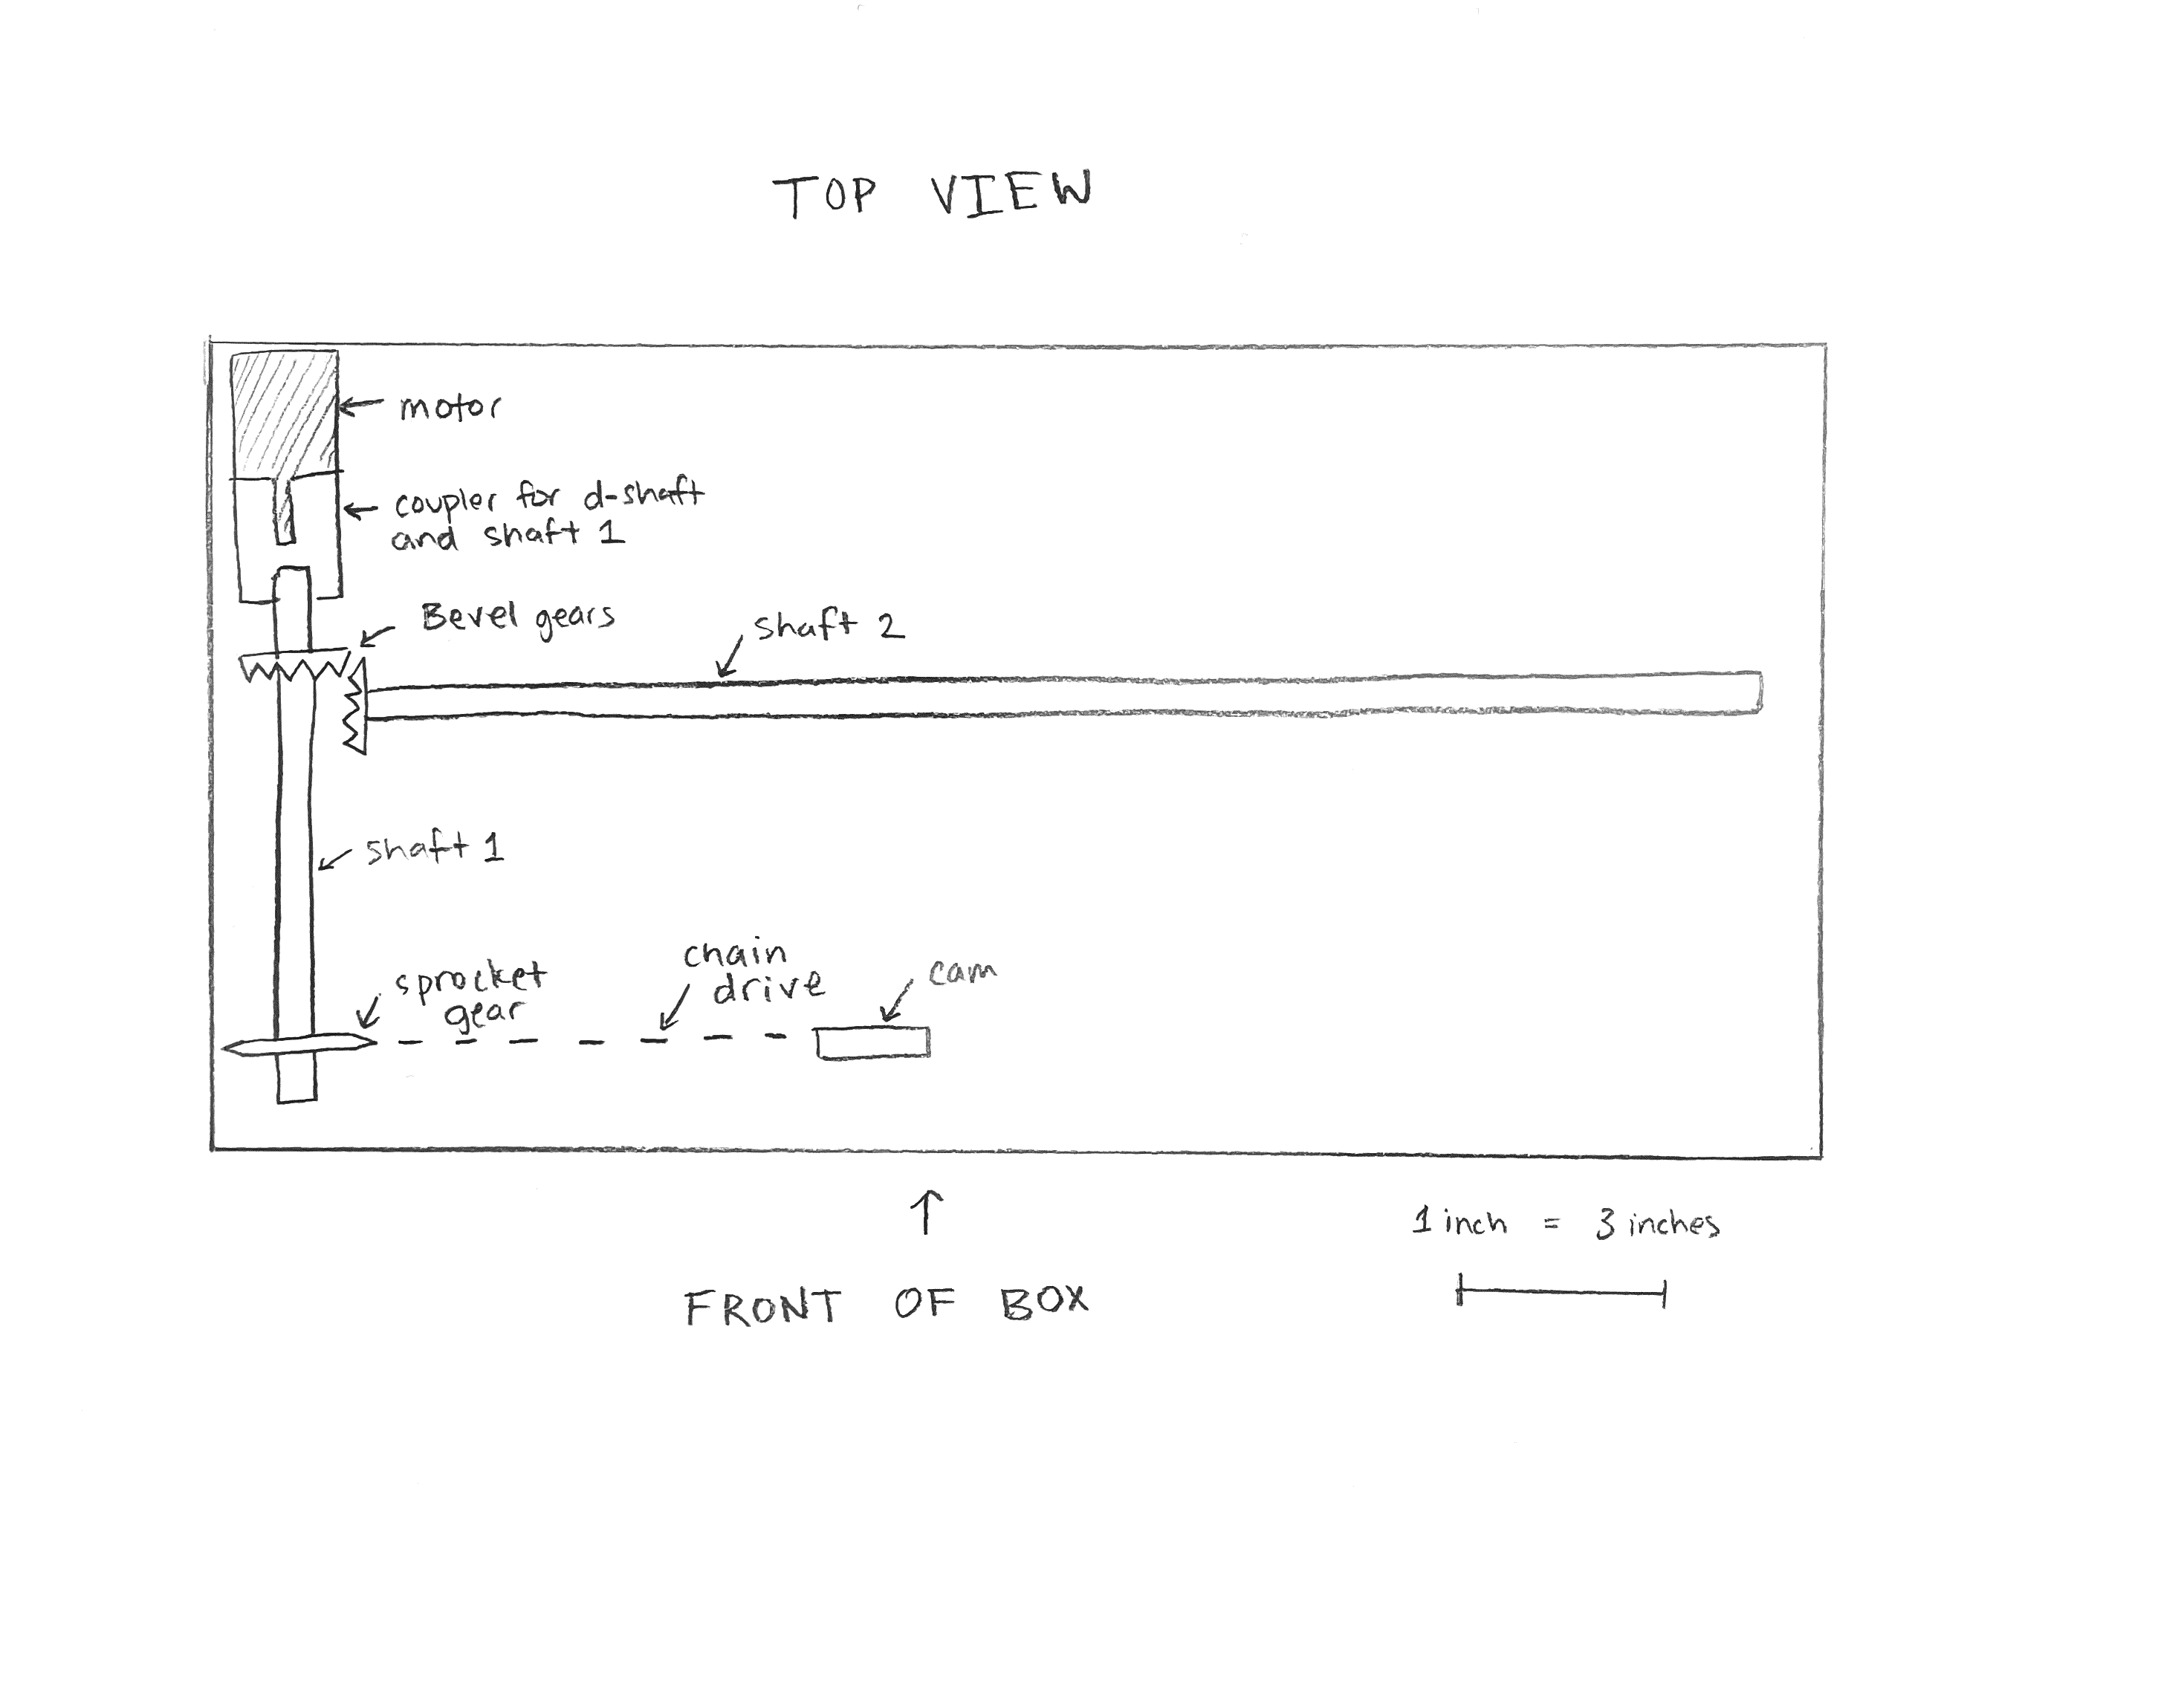 TOP VIEW
motor
coupler for d-shaft
and shaft 1
Bevel gears
shaft 2
shaft 1
sprocket
gear
chain
drive
cam
1 inch = 3 inches
FRONT OF BOX